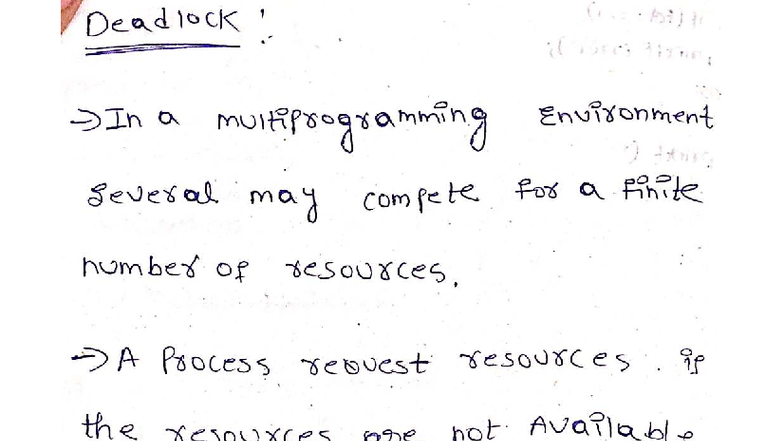 Deadlock :
→ In a multiprogramming Environment
several may compete for a finite
number of resources.
→ A Process request resources. if
the resources are not Available